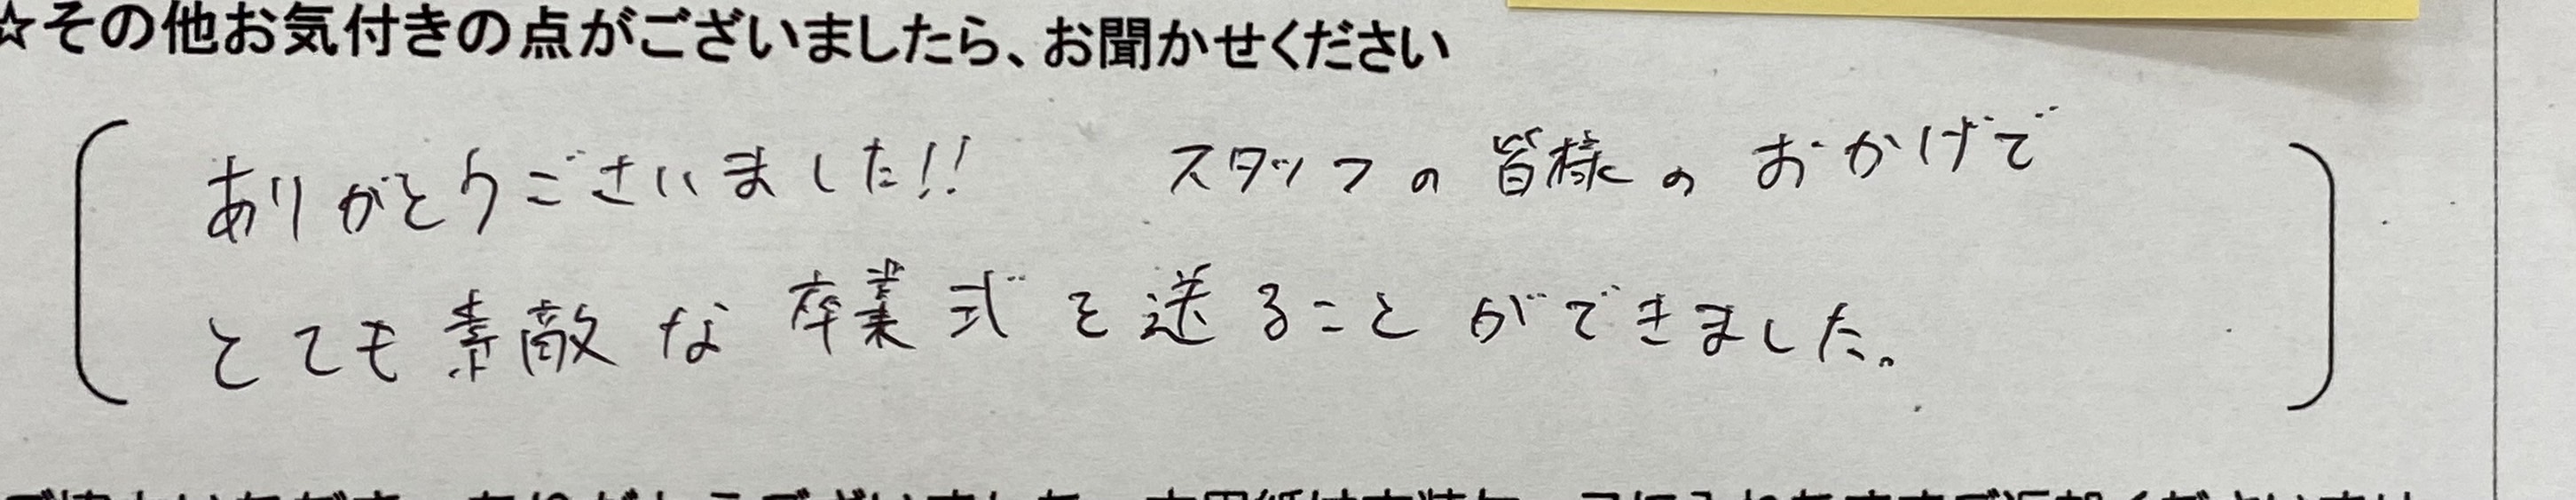 ☆その他お気付きの点がございましたら、お聞かせください
ありがとうございました!! スタッフの皆様のおかげで
とても素敵な卒業式を送ることができました。